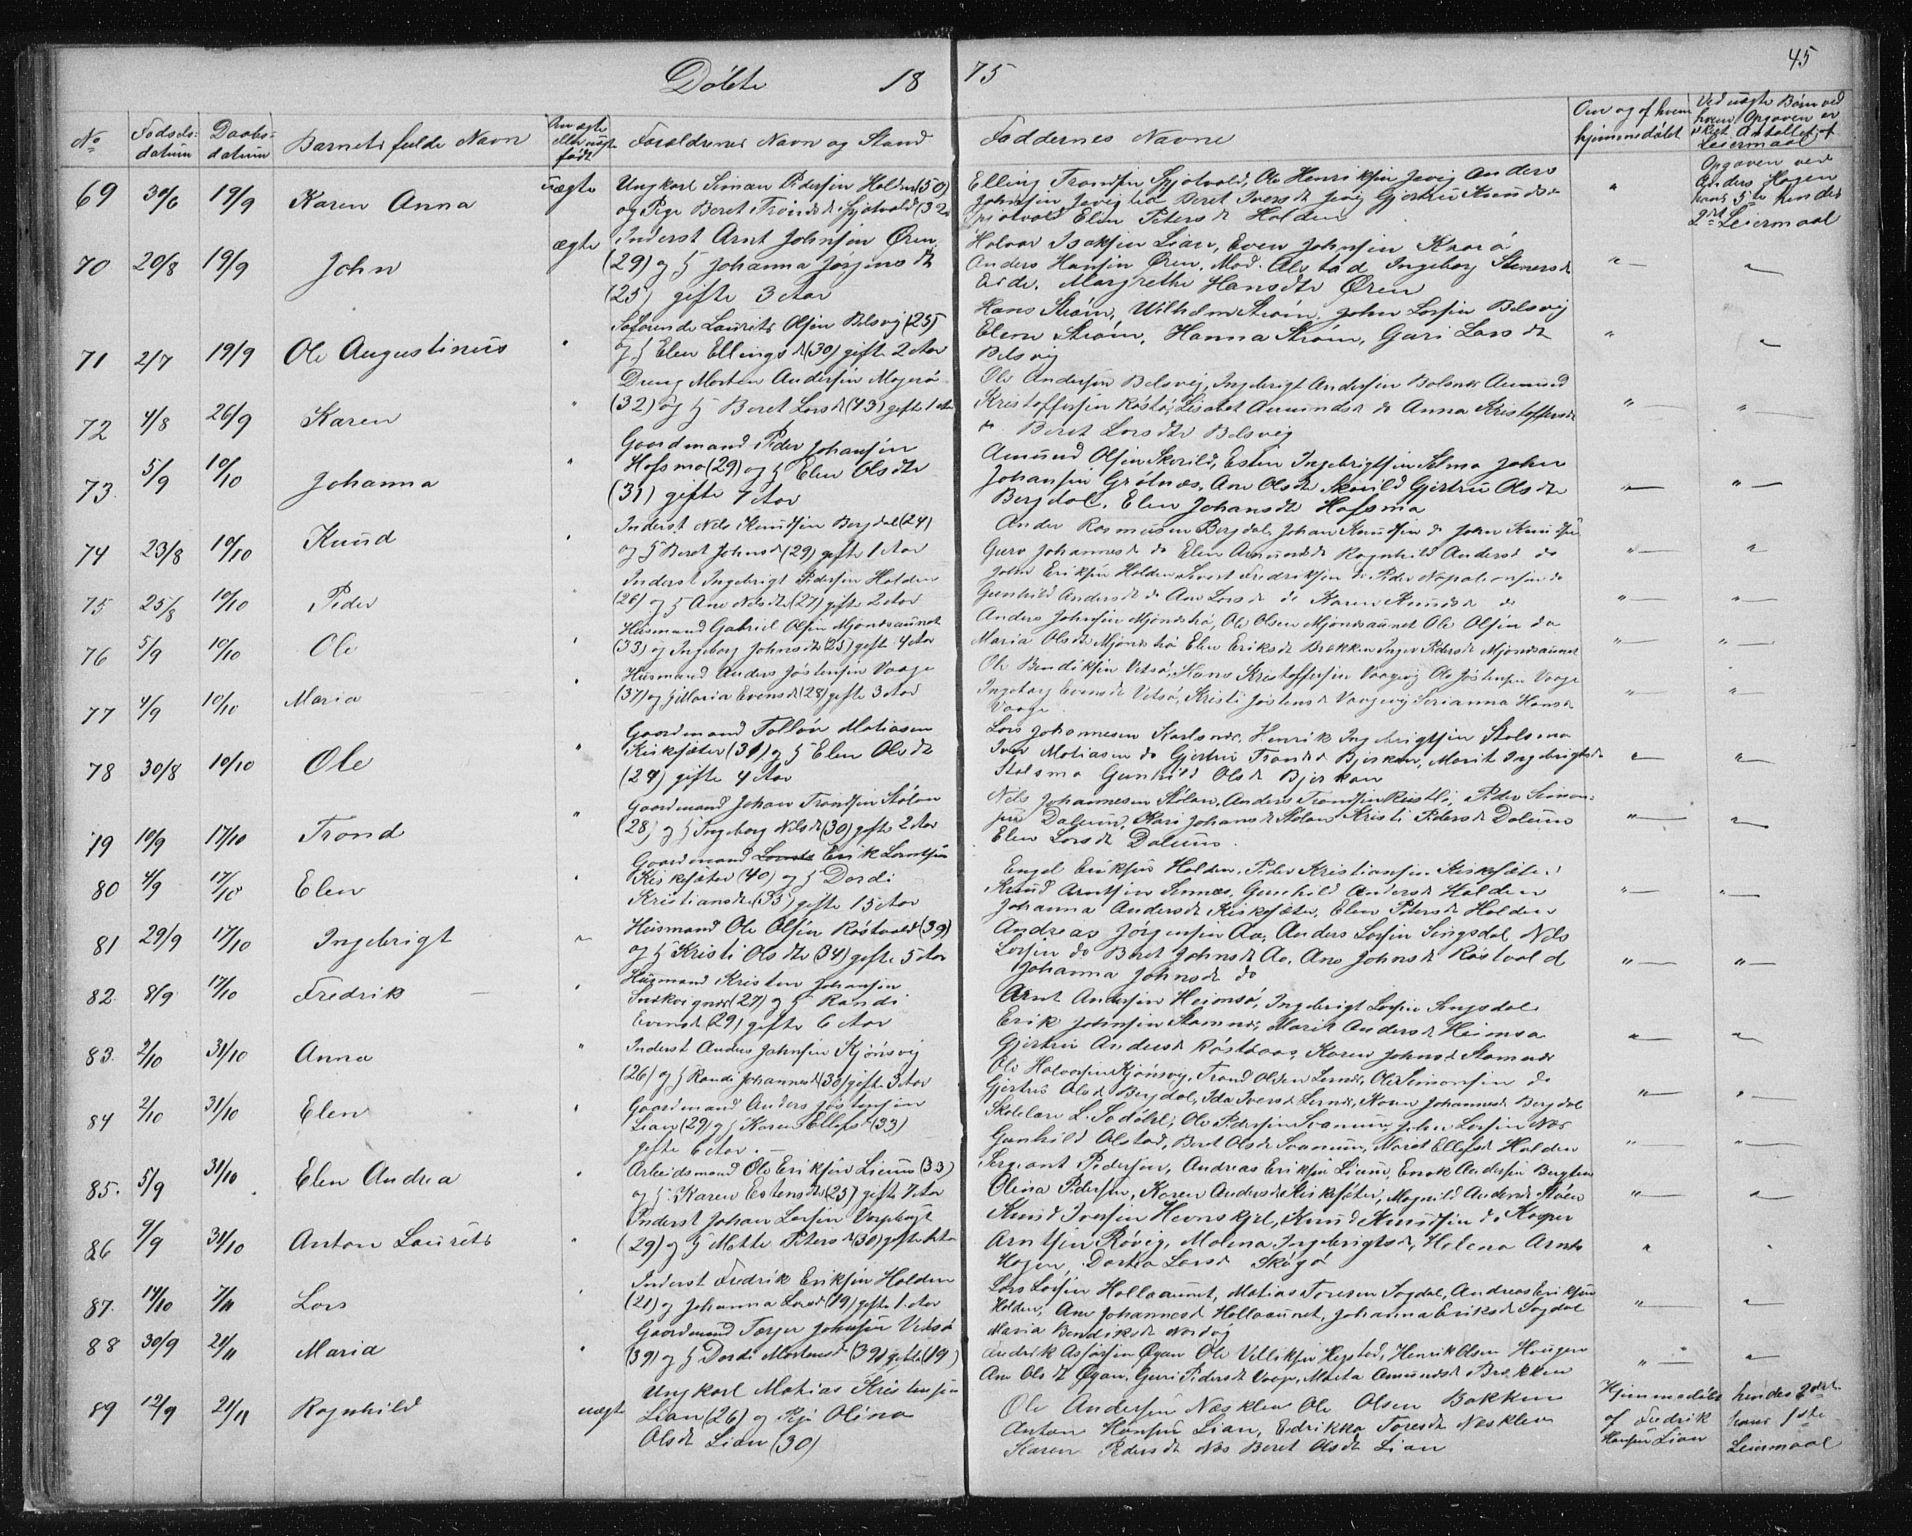 45
Døbte 1875
No
Fødsels-
datum
Daabs-
datum
Barnets fulde Navn
Om ægte
eller uægte
født
Forældrenes Navn og Stand
Faddernes Navne
Om og af hvem
hjemmedøbt
Ved uægte Børn ved
hvem Opgaven er
skeet. Antallet af
Leiermaal
69 30/6 19/9 Karen Anna uægte
Ungkarl Simon Pedersen Holden (50)
og Pige Beret Tronds dt Gjøtvold (32)
Elling Trondsen Gjøtvold, Ole Henriksen Jevig Anders
Johnsen Jevig Beret Ivers dt Jevig Gjertru Knuds dt
Gjøtvold Elen Peters dt Holden
"
Opgaven ved
Anders Hagen
hans 5te hendes
2det Leiermaal
70 20/8 19/9 John ægte
Inderst Arnt Johnsen Øren
(29) og H Johanna Jørgens dt
(25) gifte 3 Aar
Halvor Isaksen Lian, Even Johnsen
Anders Hansen Øren, Mad. Alstad Ingeborg Steners dt
Eide, Margrethe Hansdtr Øren
" "
71 2/7 19/9 Ole Augustinus "
Søfarende Laurits Olsen Belsvig (25)
og H Elen Ellings dt (30) gifte 2 Aar
Hans Strøm, Wilhelm Strøm, John Larsen Belsvig
Elen Strøm, Hanna Strøm, Guri Lars dt
Belsvig
" "
72 4/8 26/9 Karen "
Dreng Morten Andersen Magerø
(32) og H Beret Lars dt (43) gifte 1 Aar
Ole Andersen Belsvig, Ingebrigt Andersen Amund
Kristoffersen Røstø, Lisabet Amunds dt do Anna Kristoffers dt
do Beret Larsdtr Belsvig
" "
73 5/9 10/10 Johanna "
Gaardmand Peder Johansen
Hofsmo (29) og H Elen Olsdtr
(31) gifte 7 Aar
Amund Olsen Skorild, Esten Ingebrigtsen Selmo John
Johansen Grøtnæs, Ane Olsdt Skorild Gjertru Olsdt
Bergdal, Elen Johansdt Hofsmo
" "
74 23/8 10/10 Knud "
Inderst Nils Knudsen Bergdal (24)
og H Beret Johns dt (29) gifte 1 Aar
Ander Rasmusen Bergdal, Johan Knudsen do John Knudsen
Guro Johannes dt do Elen Amunds dt Ragnhild Anders dt do
" "
75 25/8 10/10 Peder
Inderst Ingebrigt Pedersen Holden
(26) og H Ane Nilsdtr (27) gifte 2 Aar
John Eriksen Holden Sivert Fredriksen do Peder Napoleonsen do
Gunhild Anders dt do Ane Lars dt do Karen Knuds dt do
" "
76 5/9 10/10 Ole "
Husmand Gabriel Olsen Mjønesaunet
(33) og Ingeborg Johnsdt (25) gifte 4 Aar
Anders Johnsen Ole Olsen Mjønesaunet Ole Olsen do
Maria Olsdt Elen Eriksdt Brekken Inger Pedersdt Mjønesaunet
" "
77 4/9 10/10 Maria "
Husmand Anders Jøstensen Vaage
(37) og H Maria Evens dt (28) gifte 3 Aar
Ole Bendiksen Vitsø, Hans Kristoffersen Vaagevig Ole Jøstensen Vaage
Ingeborg Evens dt Vitsø, Kristi Jøstens dt Vaagevig Serianna Hans dt
Vaage
" "
78 30/8 10/10 Ole "
Gaardmand Tollev Matiasen
Kirksæter (31) og H Elen Ols dt
(24) gifte 4 Aar
Lars Johannesen Karlsnes, Henrik Ingebrigtsen Stolsmo
Iver Matiasen do Gjertru Tronds dt Bjerkan, Marit Ingebrigts dt
Stolsmo Gunhild Ols dt Bjerkan
" "
79 19/9 17/10 Trond "
Gaardmand Johan Trondsen Stølan
(28) og H Ingeborg Nilsdt (30) gifte 2 Aar
Nils Johannesen Stølan, Anders Trondsen Rustli, Peder Simon-
sen Dalum, Kari Johans dt Stølan Kristi Peders dt Dalum
Elen Lars dt Dalum
" "
80 4/9 17/10 Elen "
Gaardmand Erik Larntsen
Kirksæter (40) og H Dordi
Kristiansdt (35) gifte 15 Aar
Engel Eriksen Holden, Peder Kristiansen Kirksæter
Knud Arntsen Gunhild Anders dt Holden
Johanna Anders dt Kirksæter, Elen Peters dt Holden
" "
81 29/9 17/10 Ingebrigt "
Husmand Ole Olsen Røstvold (39)
og H Kristi Olsdtr (34) gifte 5 Aar
Andreas Jørgensen Aa, Anders Larsen Singsdal Nils
Larsen do Beret Johns dt Aa, Ane Johns dt Røstvold
Johanna Johns dt do
" "
82 8/9 17/10 Fredrik "
Husmand Kristen Johansen
(27) og H Randi
Evensdt (29) gifte 6 Aar
Arnt Andersen Heimsø, Ingebrigt Larsen Singsdal
Erik Johnsen Stamnes, Marit Anders dt Heimsø
Gjertru Anders dt Karen Johns dt Stamnes
" "
83 2/10 31/10 Anna "
Inderst Anders Johnsen Kjønsvig
(26) og H Randi Johannesdt (30) gifte 3 Aar
Ole Halvorsen Kjønsvig, Trond Olsen Lernes, Ole Simonsen do
Gjertru Olsdt Bergdal, Ida Ivers dt Lernes, Karen Johannesdt Bergdal
" "
84 2/10 31/10 Elen "
Gaardmand Anders Jøstensen
Lian (29) og H Karen Ellefsdt (33)
gifte 6 Aar
Skolelærer L. Sødahl, Ole Pedersen Svanem, John Larsen Næs
Gunhild Alstad, Beret Olsdt Svanem, Maret Ellefsdt Holden
" "
85 5/9 31/10 Elen Andrea "
Arbeidsmand Ole Eriksen Lium (33)
og H Karen Estensdtr (25) gifte 7 Aar
Sergeant Pedersen, Andreas Eriksen Lium, Enok Andersen
Olina Pedersen, Karen Andersdt Kirksæter, Magnild Andersdt Støen
" "
86 9/9 31/10 Anton Laurits "
Inderst Johan Larsen
(29) og H Mette Petersdt (30) gifte
Knud Iversen Hevnskjel, Knud Knudsen do Kasper
Arntsen Røvig, Malena Ingebrigtsdt, Helena Arnts
Hagen, Dortea Larsdt Skøgø
" "
87 14/10 7/11 Lars "
Inderst Fredrik Eriksen Holden
(21) og Johanna Larsdt (19) gifte 1 Aar
Lars Larsen Hollaunet, Matias Toresen Sogdal, Andreas Eriksen
Holden, Ane Johannesdt Hollaunet, Johanna Eriksdt Sogdal
Maria Bendiksdt
" "
88 30/9 21/11 Maria "
Gaardmand Torger Johnsen Vitsø
(39) og H Dordi Mortensdt (39) gifte (19)
Fredrik Øyan Ole Henrik Olsen Haugen
Ane Olsdt Øyan, Guri Pedersdt Vaage, Marta Amundsdt Brekken
" "
89 12/9 21/11 Ragnhild uægte
Ungkarl Matias Kristensen
Lian (26) og Pige Olina
Olsdt Lian (30)
Ole Andersen Næsklev Ole Olsen Bakken
Anton Hansen Lian, Edrikka Toresdt Næsklev
Karen Pedersdt Næs Beret Olsdt Lian
Hjemmedøbt
af Fredrik
Hansen Lian
hendes 2det
hans 1ste
Leiermaal